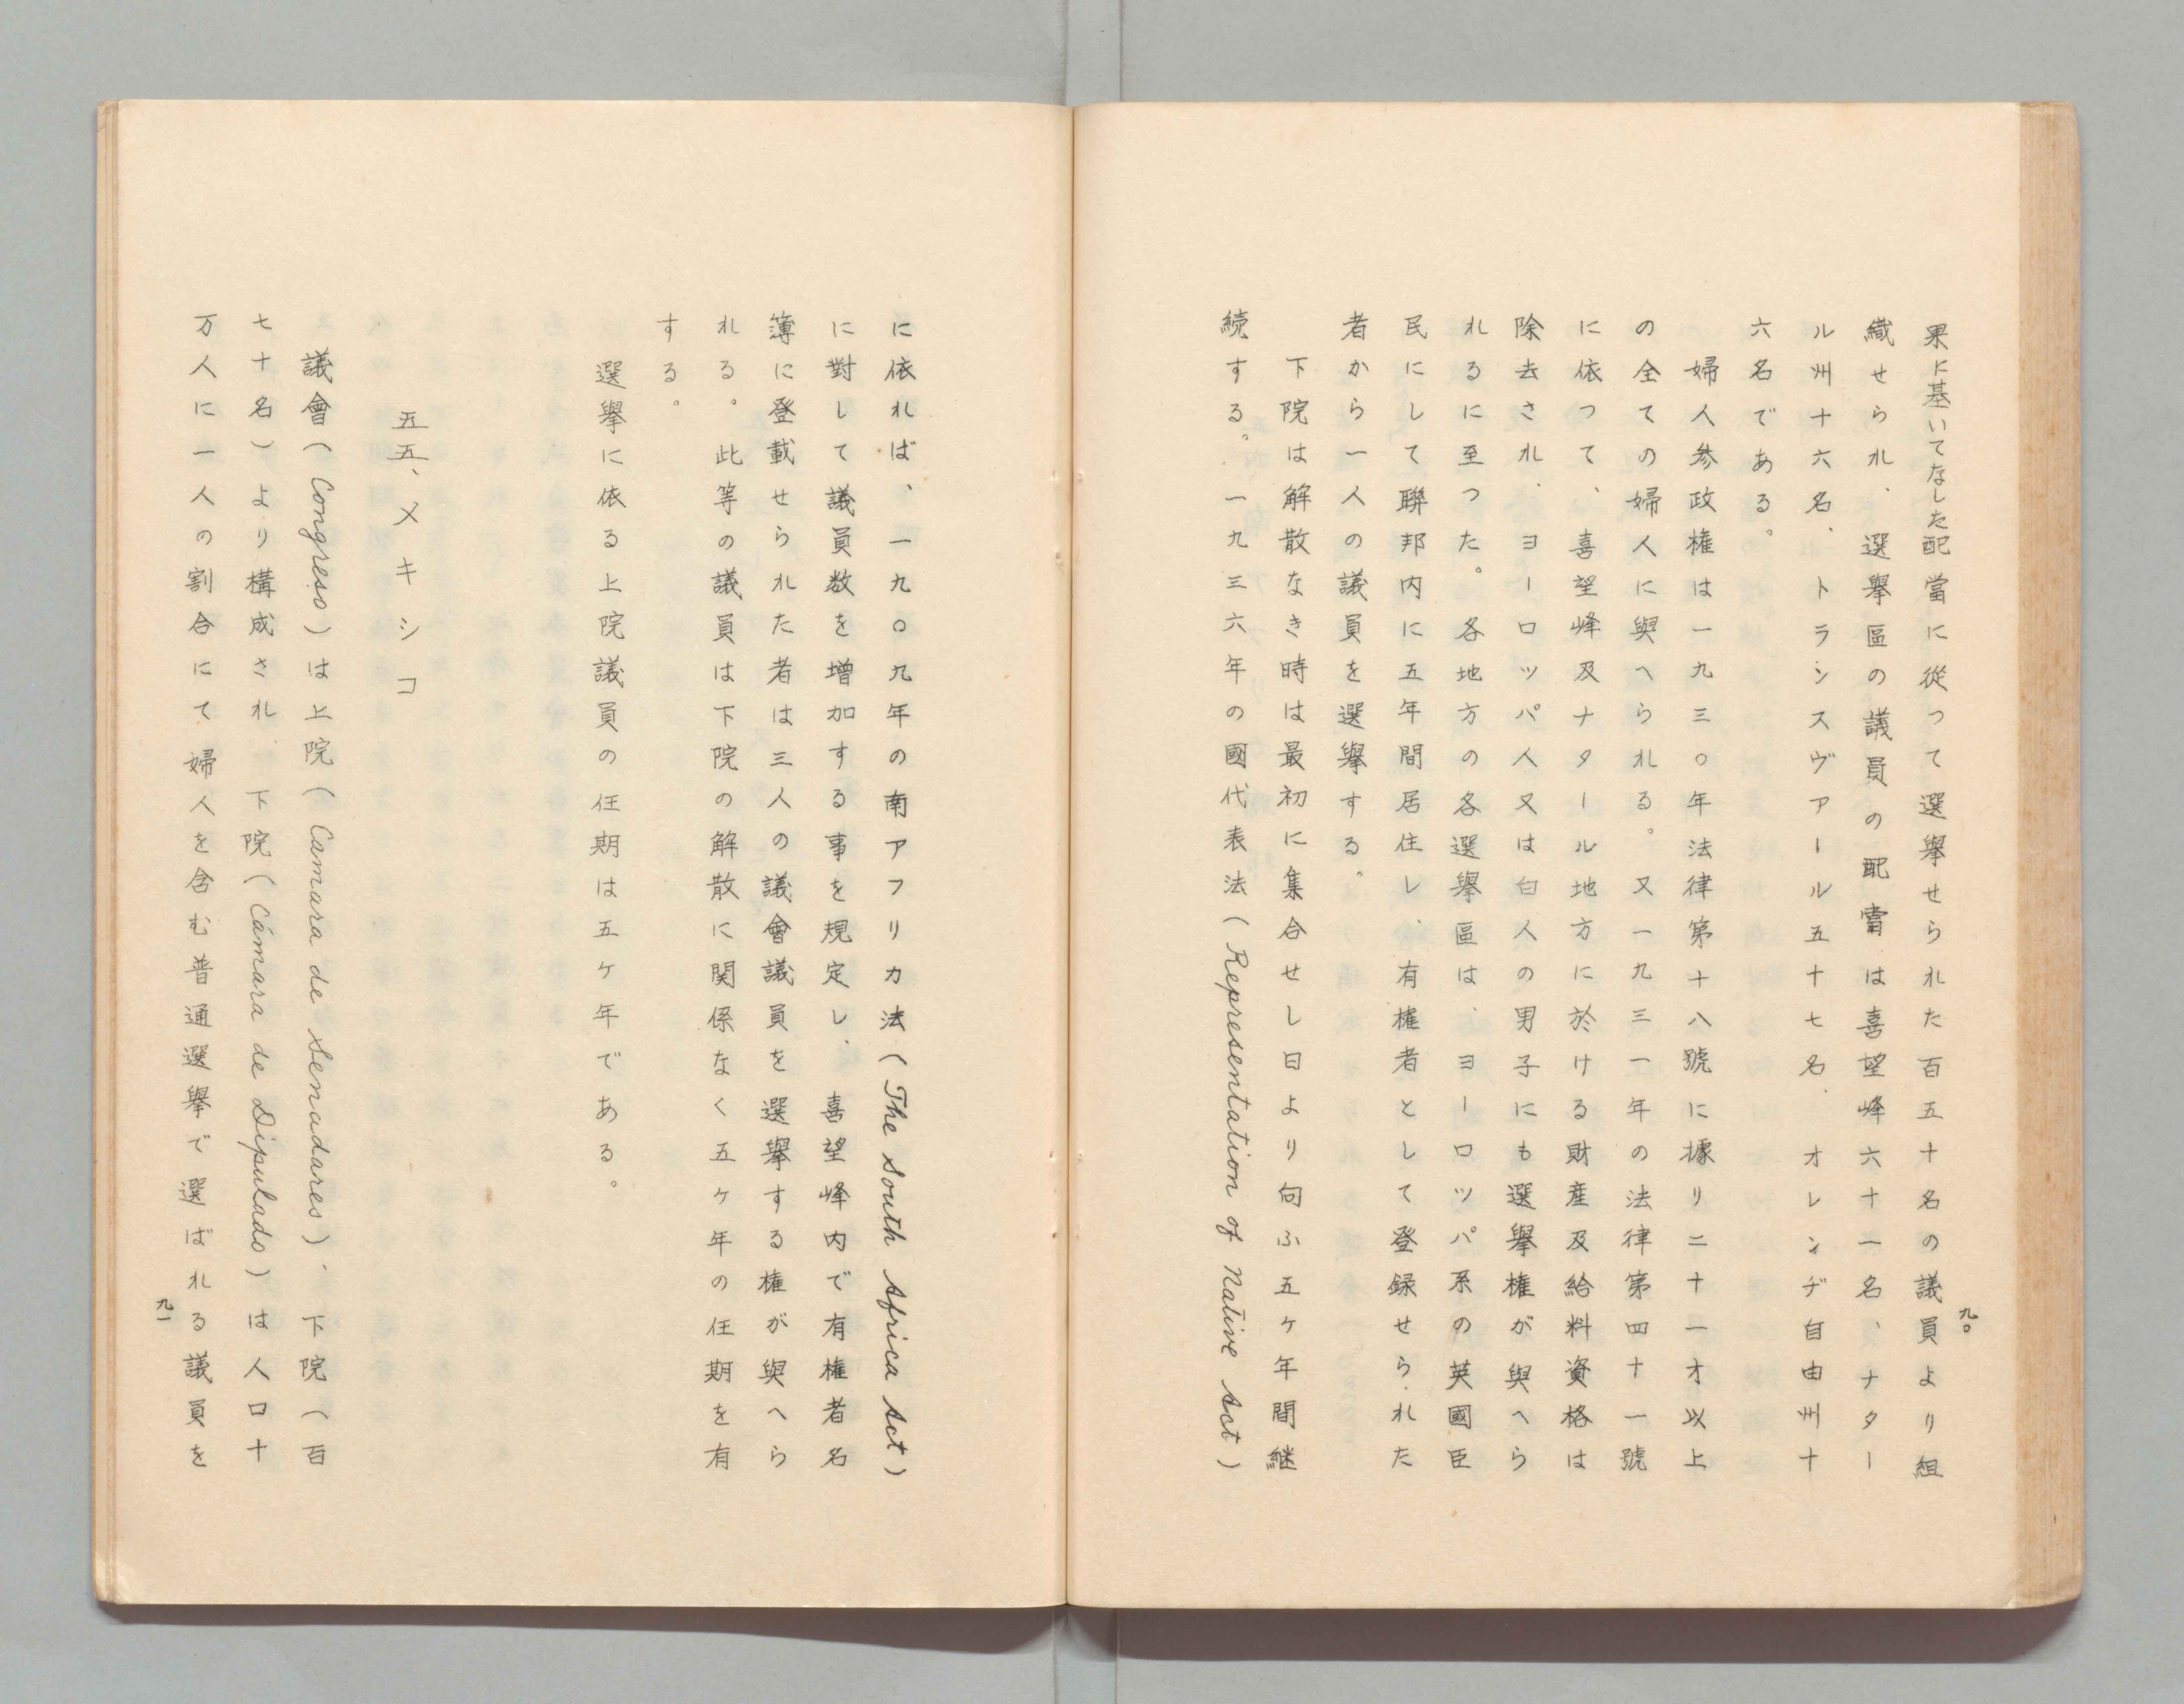 九〇
果に基いてなした配當に從って選擧せられた百五十名の議員より組
織せられ、選擧區の議員の配當は喜望峰六十一名、ナター
ル州十六名、トランスヴァール五十七名、オレンヂ自由州十
六名である。
婦人参政権は一九三〇年法律第十八號に據り二十一才以上
の全ての婦人に與へられる。又一九三一年の法律第四十一號
に依つて、喜望峰及ナタール地方に於ける財産及給料資格は
除去され、ヨーロッパ人又は白人の男子にも選擧権が與へら
れるに至つた。各地方の各選擧區は、ヨーロツパ系の英國臣
民にして聯邦内に五年間居住し、有権者として登録せられた
者から一人の議員を選擧する。
下院は解散なき時は最初に集合せし日より向ふ五ケ年間継
続する。一九三六年の國代表法(Representation of Native Act)
に依れば、一九〇九年の南アフリカ法(The South Africa Act)
に對して議員数を増加する事を規定し、喜望峰内で有権者名
簿に登載せられた者は三人の議會議員を選擧する権が與へら
れる。此等の議員は下院の解散に関係なく五ケ年の任期を有
する。
選擧に依る上院議員の任期は五ケ年である。
五五、メキシコ
議會(Congreso)は上院(Camara de Senadares)、下院(百
七十名)より構成され、下院(Cámara de Diputado)は人口十
万人に一人の割合にて婦人を含む普通選擧で選ばれる議員を
九一